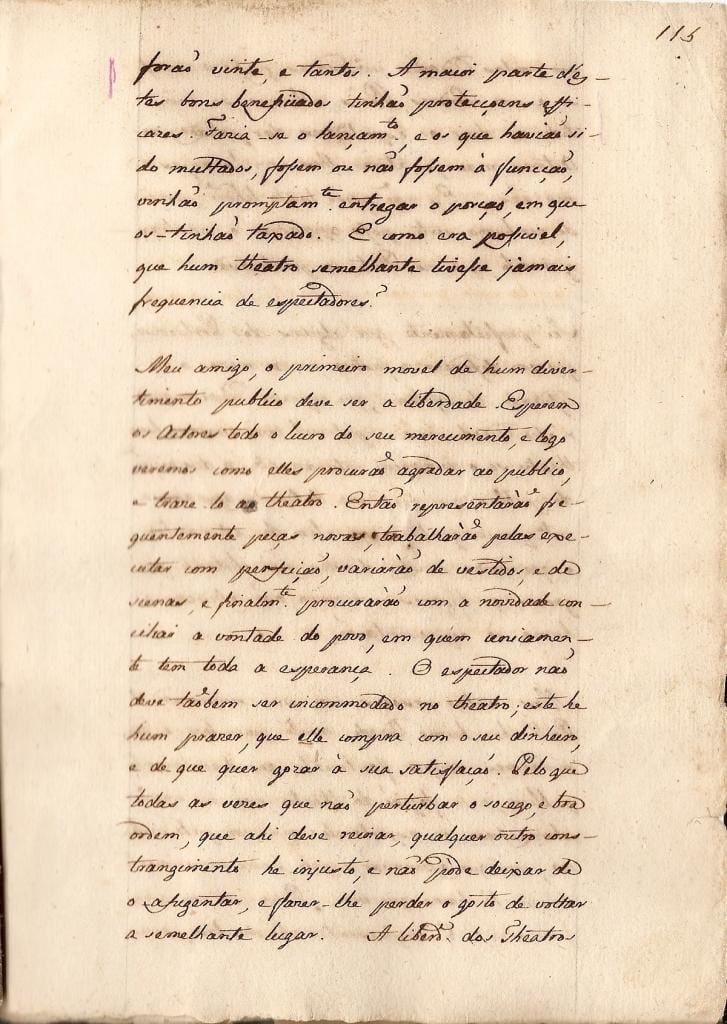 115
forão vinte, e tantos. A maior parte d'es-
tes bons beneficiados tinhão protecçoens effi-
cazes. Fazia-se o lançam.to, e os que havião si-
do multados, fossem ou não fossem à funcção,
vinhão promptam.te entregar o porção, em que
os-tinhão taxado. E como era possivel,
que hum theatro semelhante tivesse jamais
frequencia de espectadores?
Meu amigo, o primeiro movel de hum diver-
timento publico deve ser a liberdade. Esperem
os Actores todo o lucro do seu merecimento, e logo
veremos como elles procurão agradar ao publico,
e traze-lo ao theatro. Então representaràõ fre-
quentemente peças novas, trabalharàõ pelas exe-
cutar com perfeição, variaràõ de vestidos, e de
scenas, e finalm.te procuraràõ com a novidade con-
ciliar a vontade do povo, em quem unicamen-
te tem toda a esperança. O espectador não
deve taõbem ser incommodado no theatro; este he
hum prazer, que elle compra com o seu dinheiro,
e de que quer gozar à sua satisfação. Pelo que
todas as vezes que não perturbar o socego, e boa
ordem, que ahi deve reinar, qualquer outro cons-
trangimento he injusto, e não pode deixar de
o afugentar, e fazer-lhe perder o gosto de voltar
a semelhante lugar. A liberd.e dos Theatros